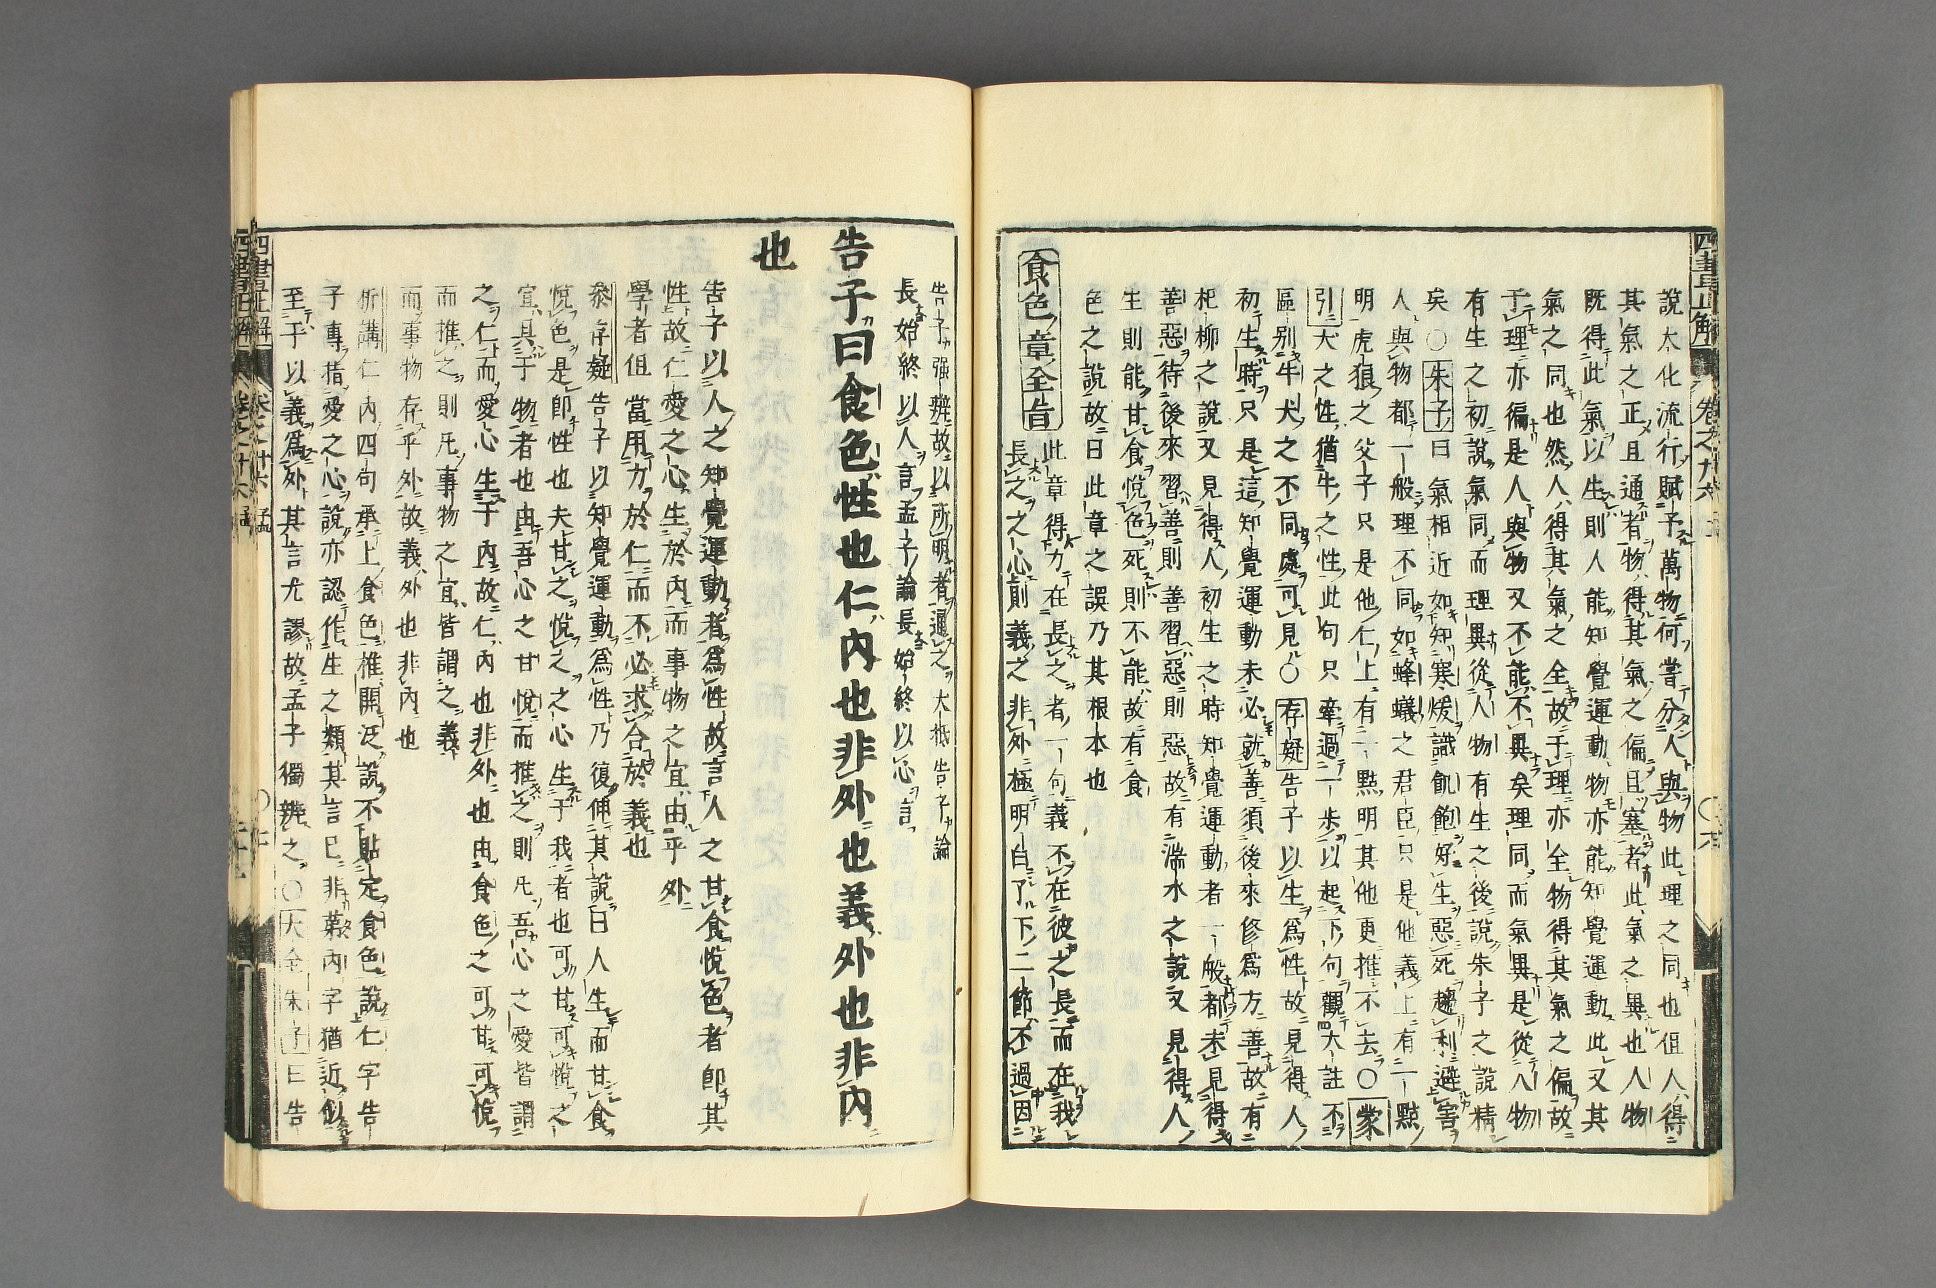 說大化流行賦予萬物何嘗分人與物此理之同也但人得
其氣之正且通者物得其氣之偏且塞者此氣之異也人物
既得此氣以生則人能知覺運動物亦能知覺運動此又其
氣之同也然人得其氣之全故于理亦全物得其氣之偏故
于理亦偏是人與物又不能不異矣理同而氣異是從人物
有生之初說氣同而理異從人物有生之後說朱子之說精
矣〇朱子曰氣相近如知寒煖識飢飽好生惡死趨利避害
人與物都一般理不同如蜂蟻之君臣只是他義上有一點
明虎狼之父子只是他仁上有一點明其他更推不去〇蒙
引犬之性猶牛之性此句只牽過一步以起下句觀大註不
區別牛犬之不同處可見〇存疑告子以生為性故見得人
初生時只是這知覺運動未必就善須後來修為方善故有
杞柳之說又見得人初生之時知覺運動者一般都未見得
善惡待後來習善則善習惡則惡故有湍水之說又見得人
生則能甘食悅色死則不能故有食
色之說故曰此章之誤乃其根本也
食色章全旨
此章得力在長之者一句義不在彼之長而在我
長之之心則義之非外極明白了下二節不過因
告子强辨故以所明者通之大抵告子論
長始終以人言孟子論長始終以心言
告子曰食色性也仁內也非外也義外也非內
也
告子以人之知覺運動者為性故言人之甘食悅色者卽其
性故仁愛之心生於內而事物之宜由乎外
學者但當用力於仁而不必求合於義也
參存疑告子以知覺運動為性乃復伸其說曰人生而甘食
悅色是卽性也夫甘之悅之之心生于我者也可甘可悅之
宜其于物者也由吾心之甘悅而推之則凡吾心之愛皆謂
之仁而愛心生于內故仁內也非外也由食色之可甘可悅
而推之則凡事物之宜皆謂之義
而事物存乎外故義外也非內也
析講仁內四句承上食色推開泛說不貼定食色說仁字告
子專指愛之心說亦認作生之類其言已非第內字猶近似
至于以義為外其言尤謬故孟子獨辨之〇大全朱子曰告